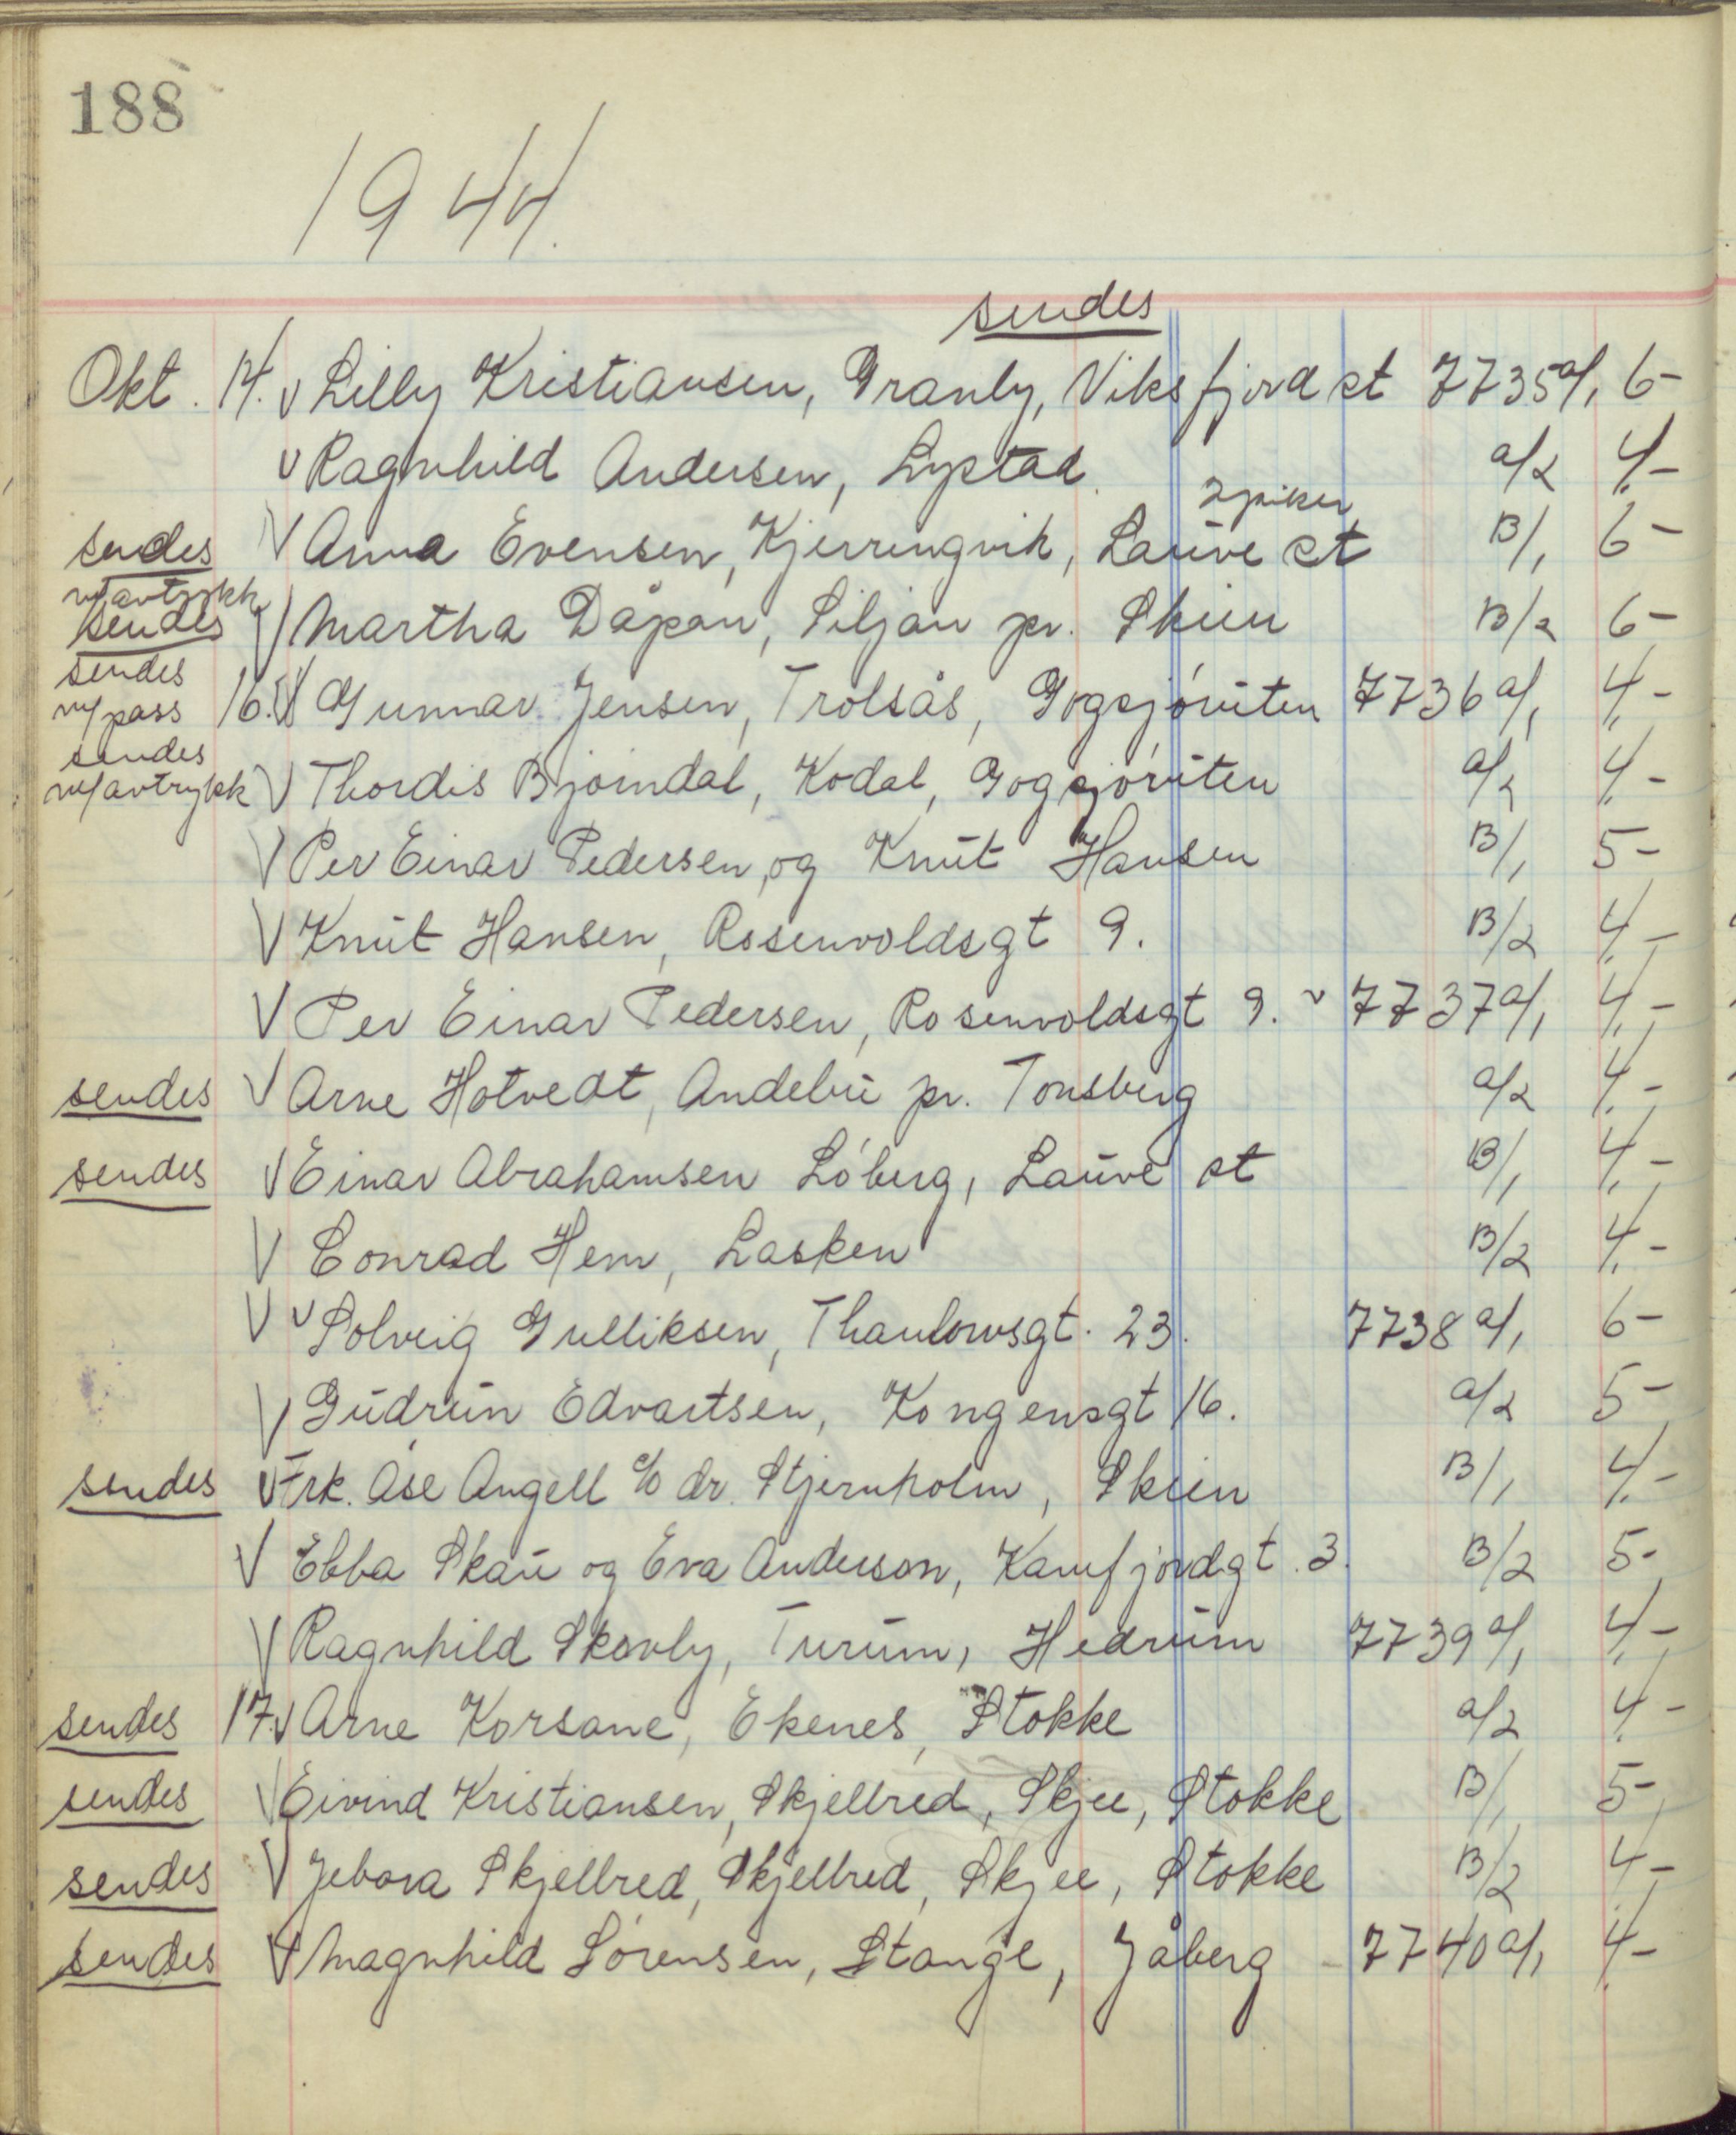 188
1944.
sendes
Okt. 14. V Lilly Kristiansen, Granly, Viksfjord st 7735 a/1 6-
V Ragnhild Andersen, Lystad. a/2 4,-
2 piker
sendes V Anna Evensen, Kjerringvik, Lauve st B/1 6-
m/avtrykk
sendes V Martha Dåpan, Siljan pr. Skien B/2 6-
sendes
m/pass 16. V Gunnar Jensen, Trolsås, Gogsjøruten 7736 a/1 4,-
sendes
m/avtrykk V Thordis Bjørndal, Kodal, Gogsjøruten a/2 4,-
V Per Einar Pedersen, og Knut Hansen B/1 5-
V Knut Hansen, Rosenvoldsgt 9. B/2 4,-
V Per Einar Pedersen, Rosenvoldsgt 9. v 7737 a/1 4,-
sendes V Arne Hotvedt, Andebu pr. Tønsberg a/2 4,-
sendes V Einar Abrahamsen Løberg, Lauve st B/1 4,-
V Conrad Hem, Lasken B/2 4,-
V V Solveig Gulliksen, Thaulowsgt. 23. 7738 a/1 6-
V Gudrun Edvartsen, Kongensgt 16. a/2 5-
sendes V Frk. Åse Angell c/o dr. Stjernholm, Skien B/1 4,-
V Ebba Skau og Eva Anderson, Kamfjordgt. 3. B/2 5-
V Ragnhild Skovly, Turum, Hedrum 7739 a/1 4,-
sendes 17. V Arne Korsane, Ekenes, Stokke a/2 4,-
sendes V Eivind Kristiansen, Skjellred, Skjee, Stokke B/1 5-
sendes V Jebora Skjellred, Skjellred, Skjee, Stokke B/2 4-
sendes V Magnhild Sørensen, Stange, Jåberg 7740 a/1 4,-